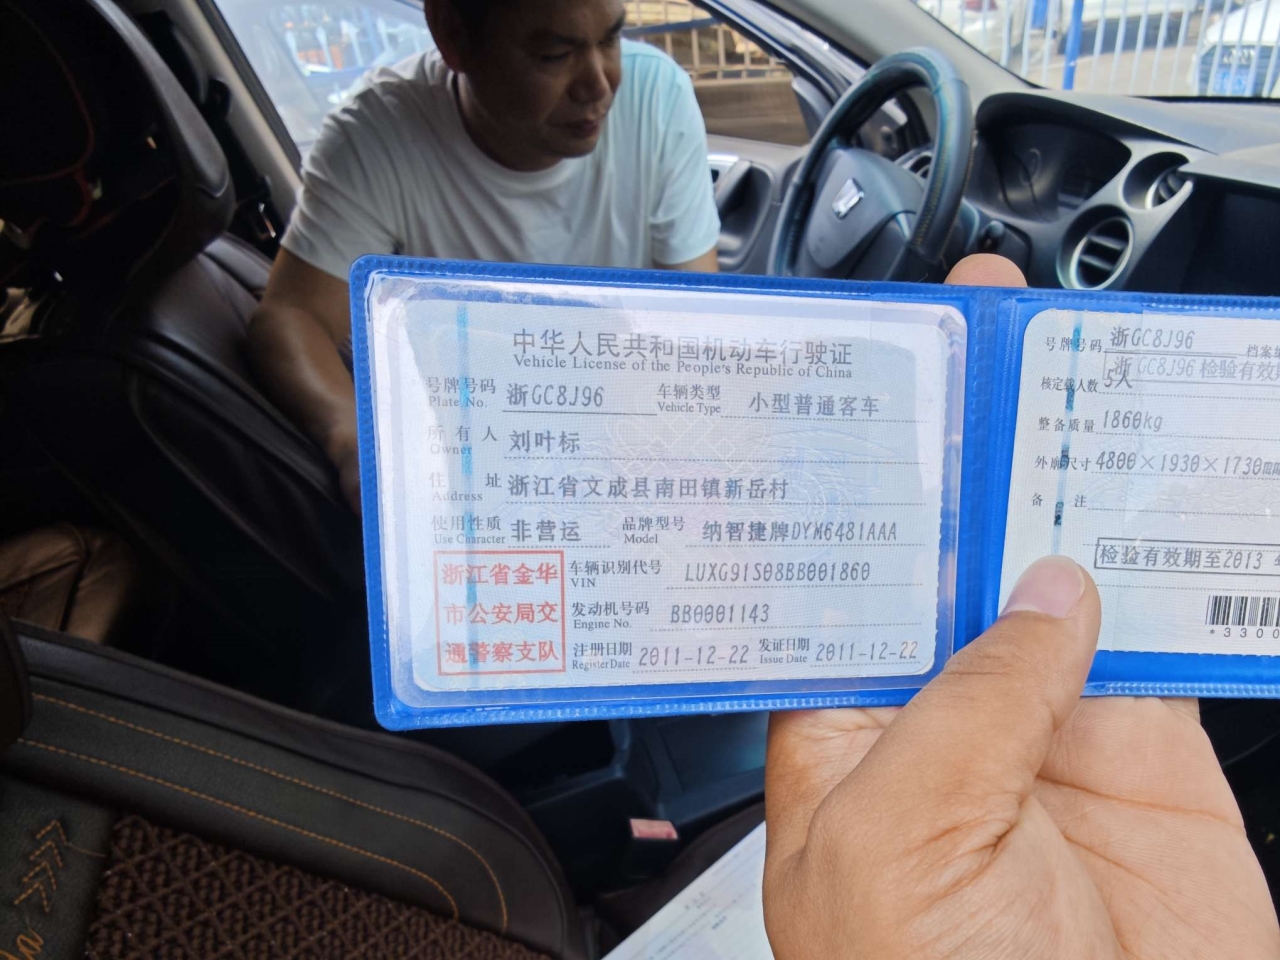 中华人民共和国机动车行驶证
Vehicle License of the People's Republic of China
号牌号码 Plate No. 浙GC8J96 车辆类型 Vehicle Type 小型普通客车
所有人 Owner 刘叶标
住址 Address 浙江省文成县南田镇新岳村
使用性质 Use Character 非营运 品牌型号 Model 纳智捷牌DYM6481AAA
车辆识别代号 VIN LUXG91S08BB001860
发动机号码 Engine No. BB0001143
注册日期 Register Date 2011-12-22 发证日期 Issue Date 2011-12-22
浙江省金华
市公安局交
通警察支队
号牌号码 浙GC8J96 档案
浙GC8J96 检验有效期
核定载人数 5人
整备质量 1860kg
外廓尺寸 4800×1930×1730mm
备注
检验有效期至2013
*3300